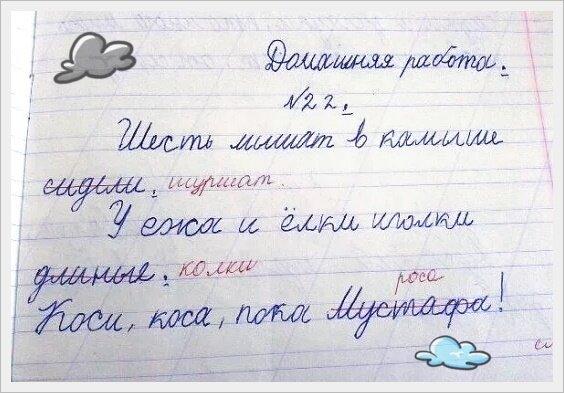 Домашняя работа.
№22.
Шесть мышат в камыше
сидели. шуршат.
У ежа и ёлки иголки
длиные. колки
роса
Коси, коса, пока Мустафа!